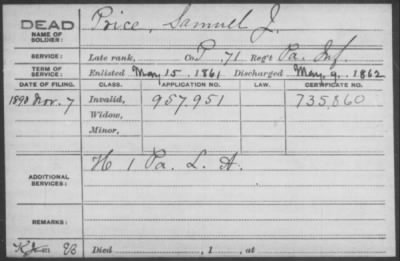 DEAD
NAME OF SOLDIER: Price, Samuel J.
SERVICE: Late rank, Co. P. 71 Reg't Pa. Inf.
TERM OF SERVICE: Enlisted May 15, 1861 Discharged May 9, 1862
DATE OF FILING. CLASS. APPLICATION NO. LAW. CERTIFICATE NO.
1890 Nov. 7 Invalid, 957,951 735,860
Widow,
Minor,
ADDITIONAL SERVICES: H 1 Pa. L. A.
REMARKS:
Died , 1 , at